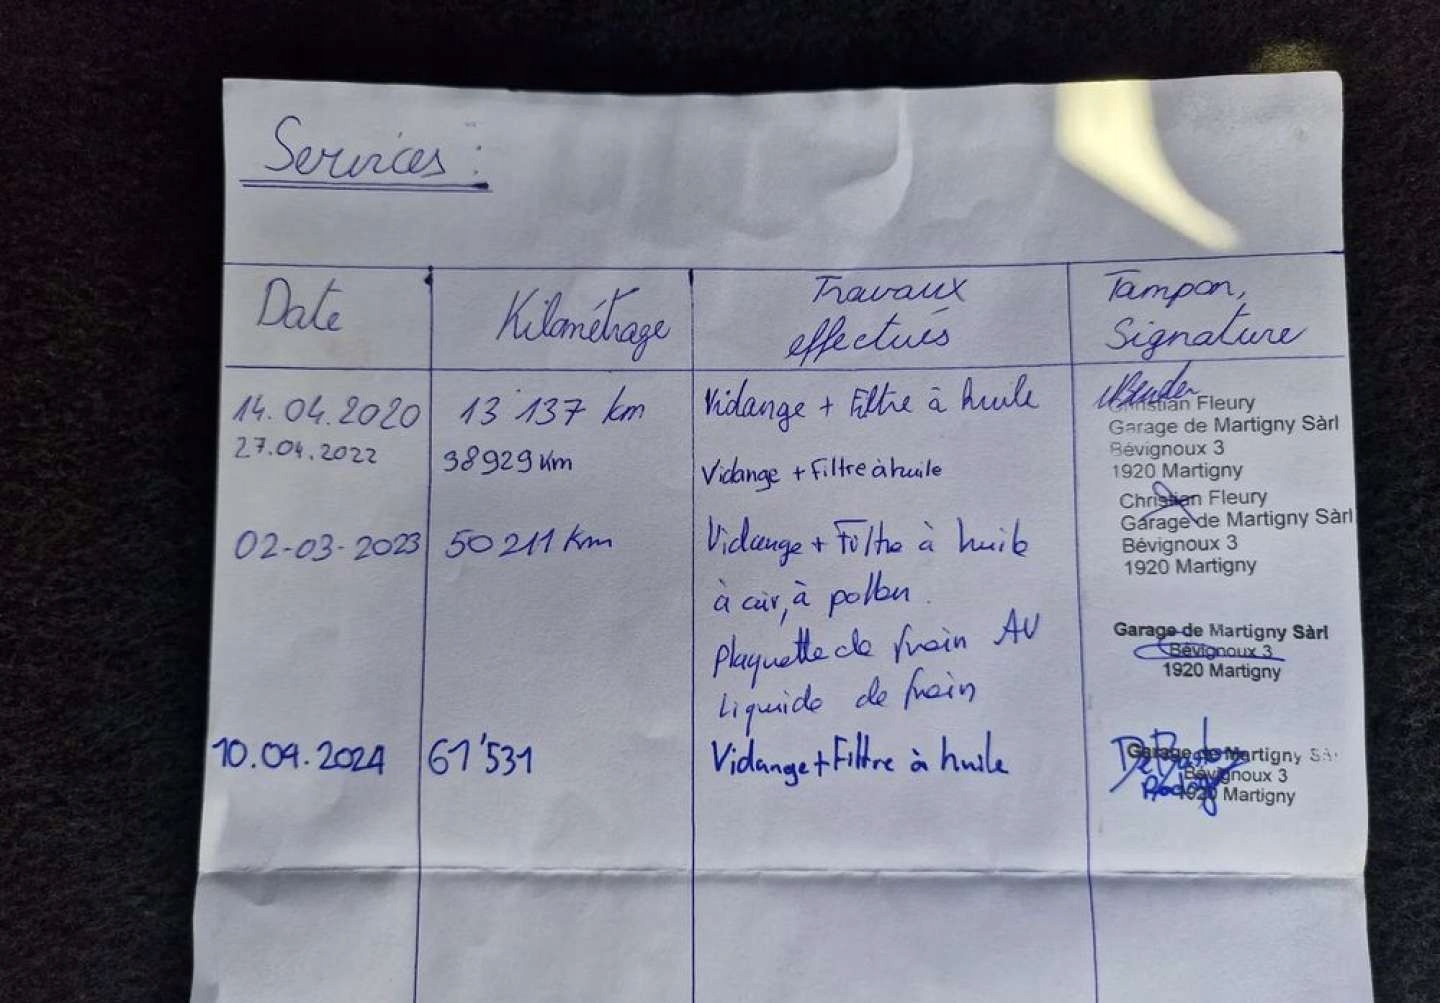 Services :
Date Kilométrage Travaux effectués Tampon, Signature
14.04.2020 13'137 km Vidange + Filtre à huile
Christian Fleury
Garage de Martigny Sàrl
Bévignoux 3
1920 Martigny
27.04.2022 38929 Km Vidange + Filtre à huile
Christian Fleury
Garage de Martigny Sàrl
Bévignoux 3
1920 Martigny
02-03-2023 50211 Km Vidange + Filtre à huile
à air, à pollen
plaquette de frein AV
Liquide de frein
Garage de Martigny Sàrl
Bévignoux 3
1920 Martigny
10.09.2024 61'531 Vidange + Filtre à huile
Garage de Martigny Sàrl
Bévignoux 3
1920 Martigny